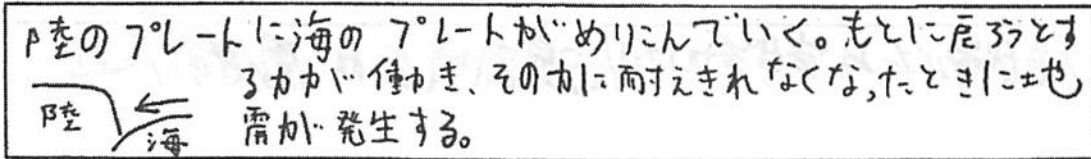 陸のプレートに海のプレートがめりこんでいく。もとに戻ろうとす
る力が働き、その力に耐えきれなくなったときに地
震が発生する。
陸
海